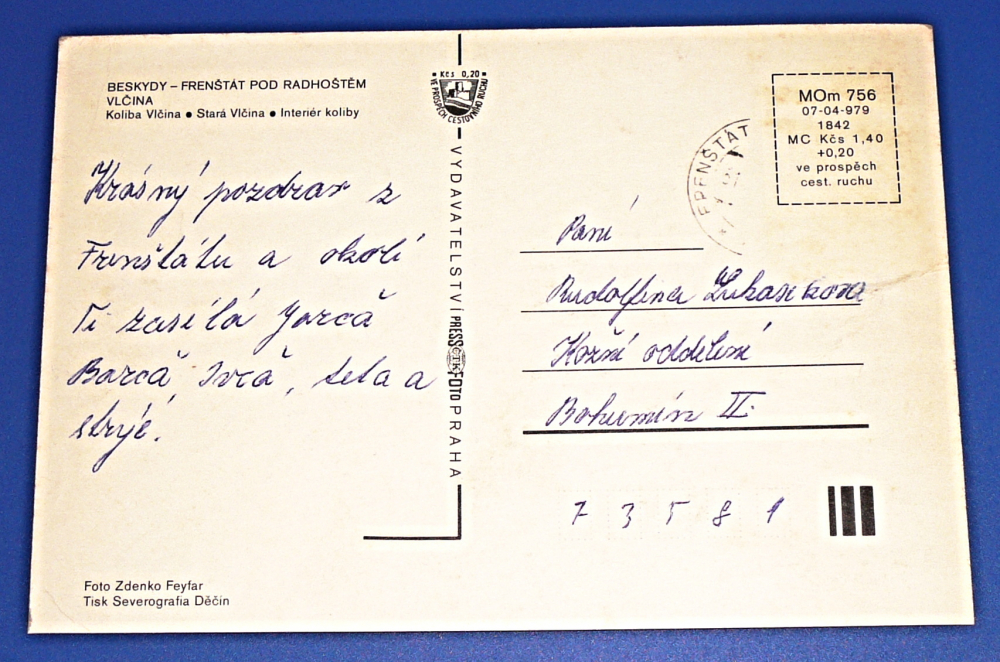 BESKYDY – FRENŠTÁT POD RADHOŠTĚM
VLČINA
Koliba Vlčina ● Stará Vlčina ● Interiér koliby
Krásný pozdrav z
Frenštátu a okolí
Ti zasílá Jarča
Barča, Ivča, teta a
strýc.
Foto Zdenko Feyfar
Tisk Severografia Děčín
Kčs 0,20
VE PROSPĚCH CESTOVNÍHO RUCHU
VYDAVATELSTVÍ PRESSFOTO PRAHA
ČTK
FRENŠTÁT
MOm 756
07-04-979
1842
MC Kčs 1,40
+0,20
ve prospěch
cest. ruchu
Paní
Rudolfina Lukasikova
Kožní oddělení
Bohumín II.
73581